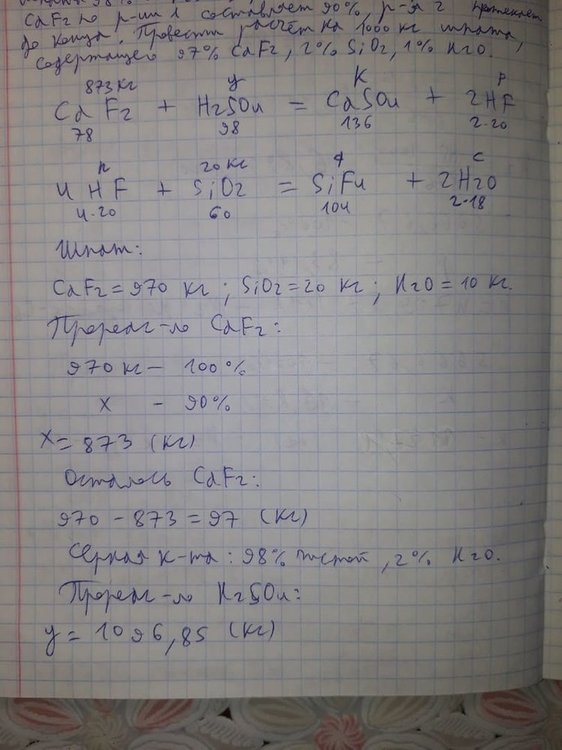 98%
CaF2 по р-ии 1 составляет 90%, р-я 2 протекает
до конца. Провести расчёт на 1000 кг шпата,
содержащего 97% CaF2, 2% SiO2, 1% H2O.
873 кг y K P
CaF2 + H2SO4 = CaSO4 + 2HF
78 98 136 2·20
n 20 кг ф c
4HF + SiO2 = SiF4 + 2H2O
4·20 60 104 2·18
Шпат:
CaF2 = 970 кг; SiO2 = 20 кг; H2O = 10 кг.
Прореаг-ло CaF2:
970 кг - 100%
x - 90%
x = 873 (кг)
Осталось CaF2:
970 - 873 = 97 (кг)
Серная к-та: 98% чистой, 2% H2O.
Прореаг-ло H2SO4:
y = 1096,85 (кг)